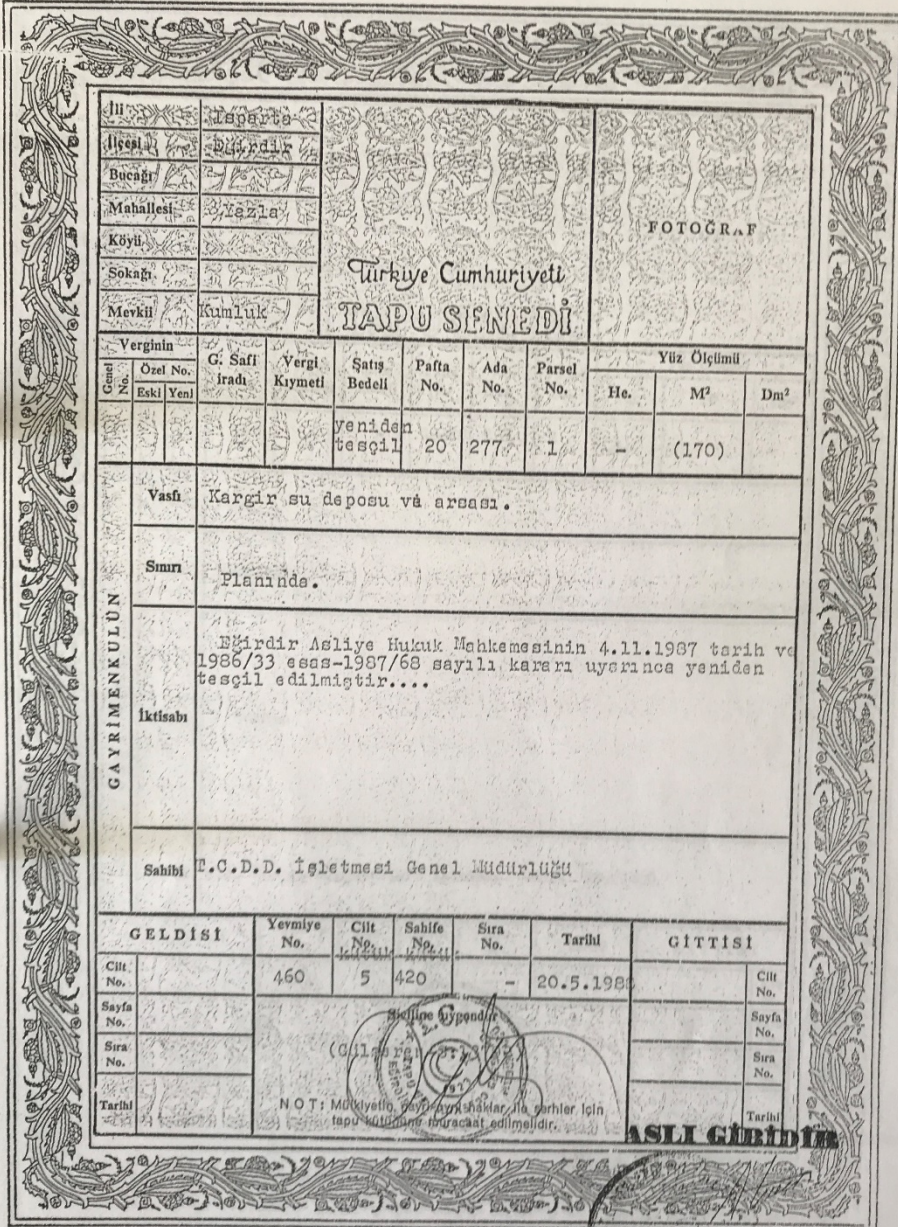 İli Isparta
İlçesi Eğirdir
Bucağı
Mahallesi Yazla
Köyü
Sokağı
Mevkii Kumluk
Türkiye Cumhuriyeti
TAPU SENEDİ
FOTOĞRAF
Verginin
Genel No.
Özel No.
Eski Yeni
G. Safi iradı
Vergi Kıymeti
Satış Bedeli
Pafta No.
Ada No.
Parsel No.
Yüz Ölçümü
He. M² Dm²
yeniden
tesçil 20 277 1 - (170)
GAYRİMENKULÜN
Vasfı Kargir su deposu və arsası.
Sınırı Planında.
İktisabı
Eğirdir Asliye Hukuk Mahkemesinin 4.11.1987 tarih ve
1986/33 esas-1987/68 sayılı kararı uyarınca yeniden
tesçil edilmiştir....
Sahibi T.C.D.D. İşletmesi Genel Müdürlüğü
GELDİSİ
Yevmiye No.
Cilt No.
Sahife No.
Sıra No.
Tarihi
GİTTİSİ
Cilt No. 460 5 420 - 20.5.198 Cilt No.
Sayfa No. Sayfa No.
Sıra No. Sıra No.
Tarihi Tarihi
Siciline uygundur
NOT: Mülkiyetin gayri ayni haklar ile şerhler için
tapu kütüğüne müracaat edilmelidir.
ASLI GİBİDİR